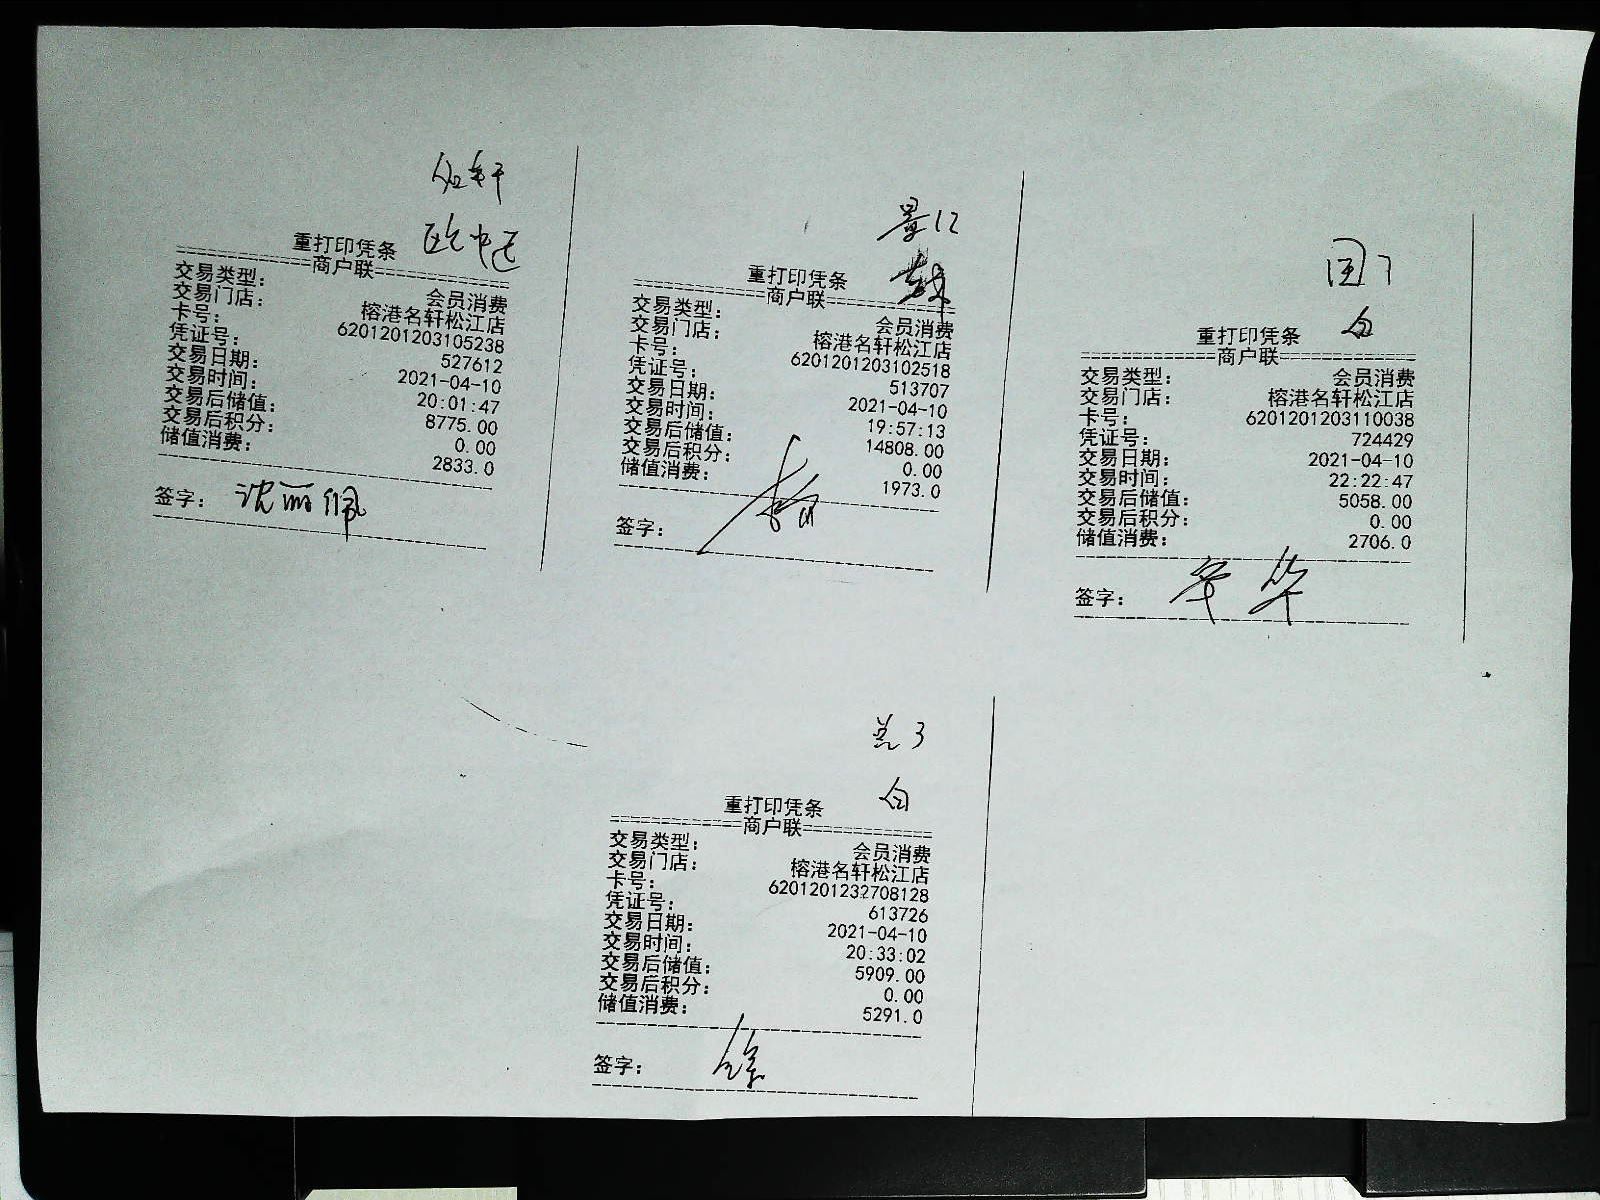 重打印凭条
============商户联============
交易类型： 会员消费
交易门店： 榕港名轩松江店
卡号： 6201201203105238
凭证号： 527612
交易日期： 2021-04-10
交易时间： 20:01:47
交易后储值： 8775.00
交易后积分： 0.00
储值消费： 2833.0
签字： 沈丽佩
重打印凭条
============商户联============
交易类型： 会员消费
交易门店： 榕港名轩松江店
卡号： 6201201203102518
凭证号： 513707
交易日期： 2021-04-10
交易时间： 19:57:13
交易后储值： 14808.00
交易后积分： 0.00
储值消费： 1973.0
签字：
白
重打印凭条
============商户联============
交易类型： 会员消费
交易门店： 榕港名轩松江店
卡号： 6201201203110038
凭证号： 724429
交易日期： 2021-04-10
交易时间： 22:22:47
交易后储值： 5058.00
交易后积分： 0.00
储值消费： 2706.0
签字：
兰3
白
重打印凭条
============商户联============
交易类型： 会员消费
交易门店： 榕港名轩松江店
卡号： 6201201232708128
凭证号： 613726
交易日期： 2021-04-10
交易时间： 20:33:02
交易后储值： 5909.00
交易后积分： 0.00
储值消费： 5291.0
签字： 徐